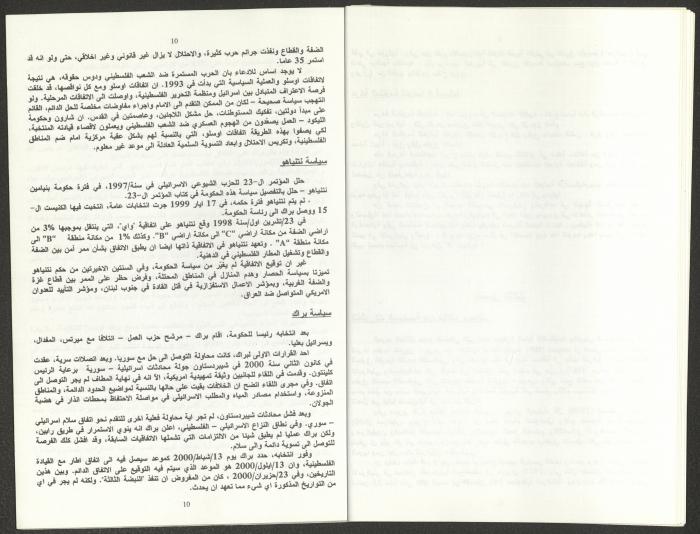 10
الضفة والقطاع ونفذت جرائم حرب كثيرة، والاحتلال لا يزال غير قانوني وغير اخلاقي، حتى ولو انه قد
استمر 35 عاما.
لا يوجد اساس للادعاء بان الحرب المستمرة ضد الشعب الفلسطيني ودوس حقوقه، هي نتيجة
لاتفاقات اوسلو والعملية السياسية التي بدأت في 1993. ان اتفاقات اوسلو ومع كل نواقصها، قد خلقت
فرصة الاعتراف المتبادل بين اسرائيل ومنظمة التحرير الفلسطينية، واوصلت الى الاتفاقات المرحلية. ولو
انتهجت سياسة صحيحة – لكان من الممكن التقدم الى الامام واجراء مفاوضات مخلصة للحل الدائم، القائم
على مبدأ دولتين، تفكيك المستوطنات، حل مشكل اللاجئين، وعاصمتين في القدس. ان شارون وحكومة
الليكود – العمل يصعدون من الهجوم العسكري ضد الشعب الفلسطيني ويعملون لاقصاء قيادته المنتخبة،
لكي يصفوا بهذه الطريقة اتفاقات اوسلو، التي بالنسبة لهم بشكل عقبة مركزية امام ضم المناطق
الفلسطينية، وتكريس الاحتلال وابعاد التسوية السلمية العادلة الى موعد غير معلوم.
سياسة نتنياهو
حلل المؤتمر ال-23 للحزب الشيوعي الاسرائيلي في سنة/1997، في فترة حكومة بنيامين
نتنياهو – حلل بالتفصيل سياسة هذه الحكومة في كتاب المؤتمر ال-23.
. لم يتم نتنياهو فترة حكمه، في 17 ايار 1999 جرت انتخابات عامة، انتخبت فيها الكنيست ال-
15 ووصل براك الى رئاسة الحكومة.
في 23/تشرين اول/سنة 1998 وقع نتنياهو على اتفاقية "واي"، التي ينتقل بموجبها 3% من
اراضي الضفة من مكانة اراضي "C" الى مكانة اراضي "B". وكذلك 1% من مكانة منطقة "B" الى
مكانة منطقة "A" . وتعهد نتنياهو في الاتفاقية ذاتها ايضا ان يطبق الاتفاق بشأن ممر آمن بين الضفة
والقطاع وتشغيل المطار الفلسطيني في الدهنية.
غير ان توقيع الاتفاقية لم يغيّر من سياسة الحكومة، وفي السنتين الاخيرتين من حكم نتنياهو
تميزتا بسياسة الحصار وهدم المنازل في المناطق المحتلة، وفرض حظر على الممر بين قطاع غزة
والضفة الغربية، وبمؤشر الاعمال الاستفزازية في قتل القادة في جنوب لبنان، ومؤشر التأييد للعدوان
الامريكي المتواصل ضد العراق.
سياسة براك
بعد انتخابه رئيسا للحكومة، اقام براك – مرشح حزب العمل – ائتلافا مع ميرتس، المفدال،
ويسرائيل بعليا.
احد القرارات الاولى لبراك، كانت محاولة التوصل الى حل مع سوريا. وبعد اتصالات سرية، عقدت
في كانون الثاني سنة 2000 في شيبردستاون جولة محادثات اسرائيلية – سورية برعاية الرئيس
كلينتون. وقدمت في اللقاء للجانبين وثيقة تمهيدية امريكية، الاّ انه في نهاية المطاف لم يجر التوصل الى
اتفاق. وفي مجرى اللقاء اتضح ان الخلافات بقيت على حالها بالنسبة لمواضيع الحدود الدائمة، والمناطق
المنزوعة، واستخدام مصادر المياه والمطلب الاسرائيلي في مواصلة الاحتفاظ بمحطات انذار في هضبة
الجولان.
وبعد فشل محادثات شيبردستاون، لم تجر اية محاولة فعلية اخرى للتقدم نحو اتفاق سلام اسرائيلي
– سوري. وفي نطاق النزاع الاسرائيلي – الفلسطيني، اعلن براك انه ينوي الاستمرار في طريق رابين،
ولكن براك عمليا لم يطبق شيئا من الالتزامات التي تشملها الاتفاقيات السابقة، وقد افشل كلك الفرصة
للتوصل الى تسوية دائمة والى سلام.
وفور انتخابه، حدد براك يوم 13/شباط/2000 كموعد سيصل فيه الى اتفاق اطار مع القيادة
الفلسطينية، وان 13/ايلول/2000 هو الموعد الذي سيتم فيه التوقيع على الاتفاق الدائم. وبين هذين
التاريخين، وفي 23/حزيران/2000 ، كان من المفروض ان تنفذ "النبضة الثالثة". ولكنه لم يجر في اي
من التواريخ المذكورة اي شيء مما تعهد ان يحدث.
10